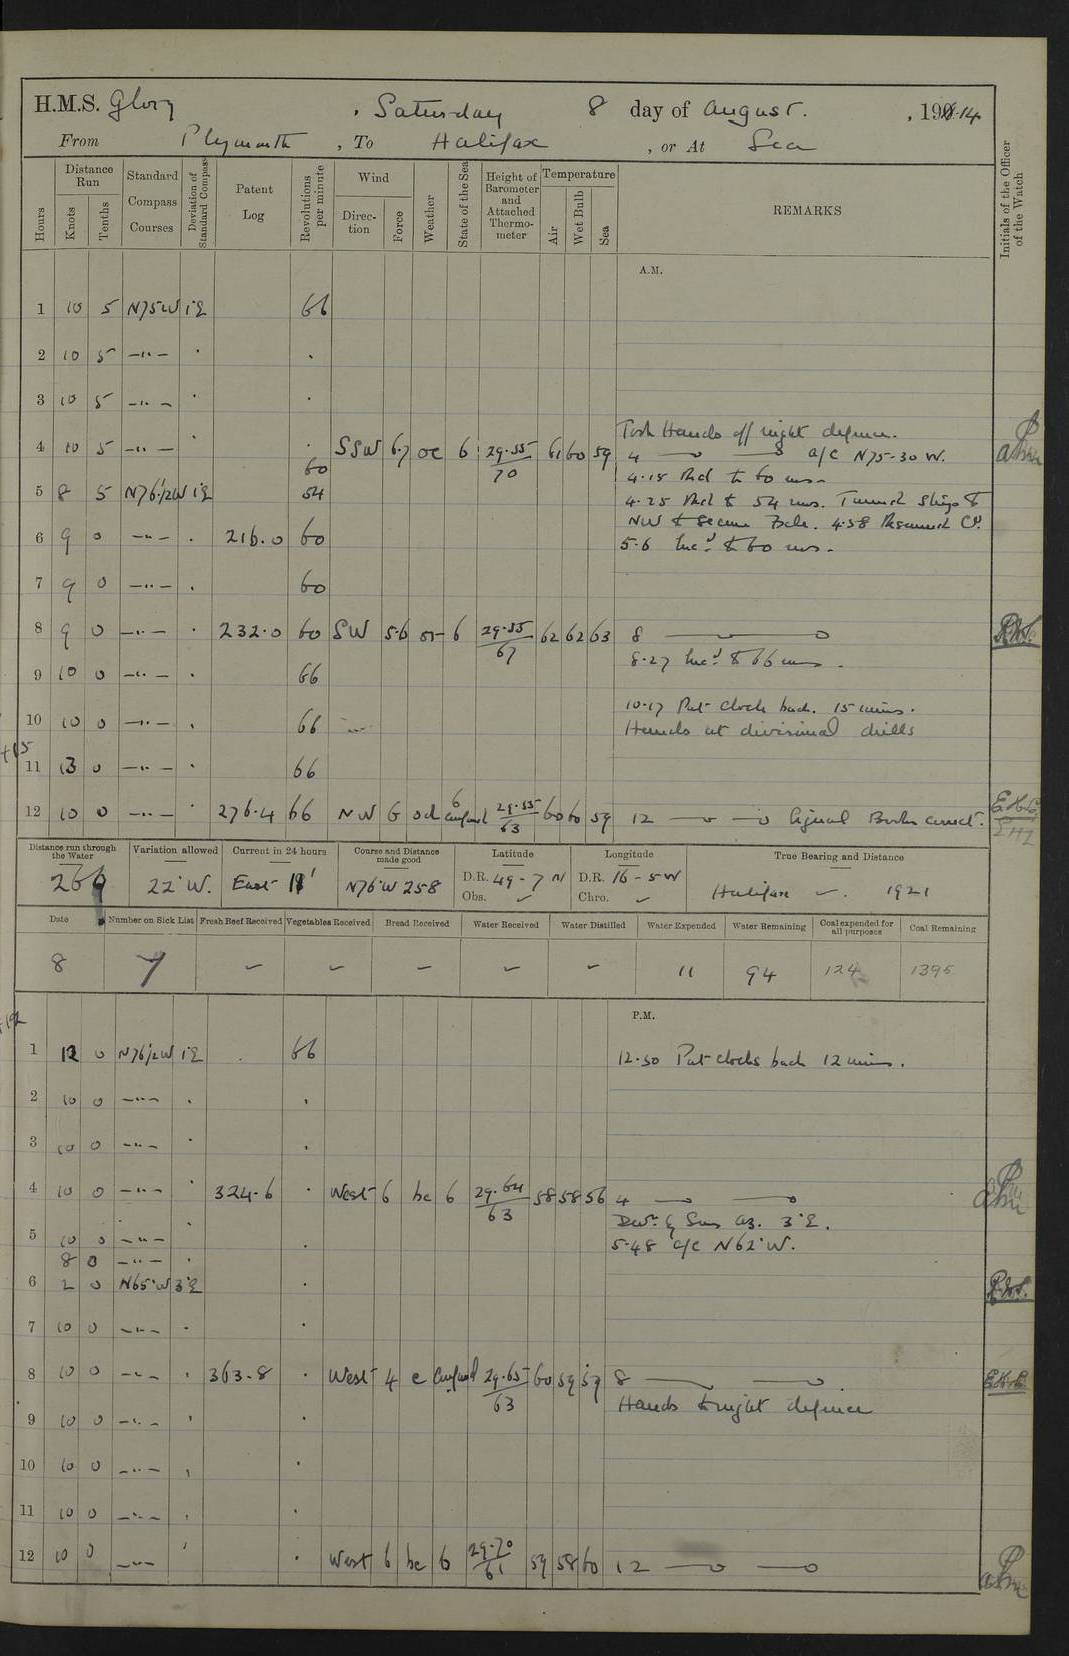 H.M.S. Glory , Saturday 8 day of August. , 1914
From Plymouth , To Halifax , or At Sea
Hours
Distance Run
Knots
Tenths
Standard Compass Courses
Deviation of Standard Compass
Patent Log
Revolutions per minute
Wind
Direction
Force
Weather
State of the Sea
Height of Barometer and Attached Thermometer
Temperature
Air
Wet Bulb
Sea
REMARKS
Initials of the Officer of the Watch
A.M.
1 10 5 N75W 1°E 66
2 10 5 —"— ·
3 10 5 —"— ·
Took Hands off night defence.
4 10 5 —"— · SSW 6.7 oc 6 29.55/70 61 60 59 4 a/c N75-30 W.
60
4.18 Red to 60 revs
5 8 5 N76½W 1°E 54
4.25 Red to 54 revs. Turned Ships to
NW to secure 4.58 Resumed Co.
6 9 0 —"— · 216.0 60
5.6 Incd to 60 revs.
7 9 0 —"— · 60
8 9 0 —"— · 232.0 60 SW 5.6 or 6 29.55/67 62 62 63 8
8.27 Incd to 66 revs.
9 10 0 —"— · 66
10.17 Put clock back 15 mins.
10 10 0 —"— · 66 Hands at divisional drills
+15
11 13 0 —"— · 66
12 10 0 —"— · 276.4 66 NW 6 od 6 confused 29.55/63 60 60 59 12 Signal Books correct. E.H.L.
Distance run through the Water
266
Variation allowed
22°W.
Current in 24 hours
East 11'
Course and Distance made good
N76°W 258
Latitude
D.R. 49-7 N
Obs. ~
Longitude
D.R. 16-5 W
Chro. ~
True Bearing and Distance
Halifax ~. 1921
Date Number on Sick List Fresh Beef Received Vegetables Received Bread Received Water Received Water Distilled Water Expended Water Remaining Coal expended for all purposes Coal Remaining
8 7 ~ ~ ~ ~ ~ 11 94 124 1395
P.M.
+12
1 12 0 N76½W 1°E 66 12.30 Put clocks back 12 mins.
2 10 0 —"— ·
3 10 0 —"— ·
4 10 0 —"— · 324.6 · West 6 bc 6 29.64/63 58 58 56 4
Devn by Sun az. 3°E.
5 10 0 —"— · 5.48 a/c N62°W.
8 0 —"— ·
6 2 0 N65°W 3°E ·
7 10 0 —"— ·
8 10 0 —"— · 363.8 · West 4 c Confused 29.65/63 60 59 59 8 E.H.L.
Hands to night defence
9 10 0 —"— ·
10 10 0 —"— ·
11 10 0 —"— ·
12 10 0 —"— · West 6 bc 6 29.70/61 59 58 60 12